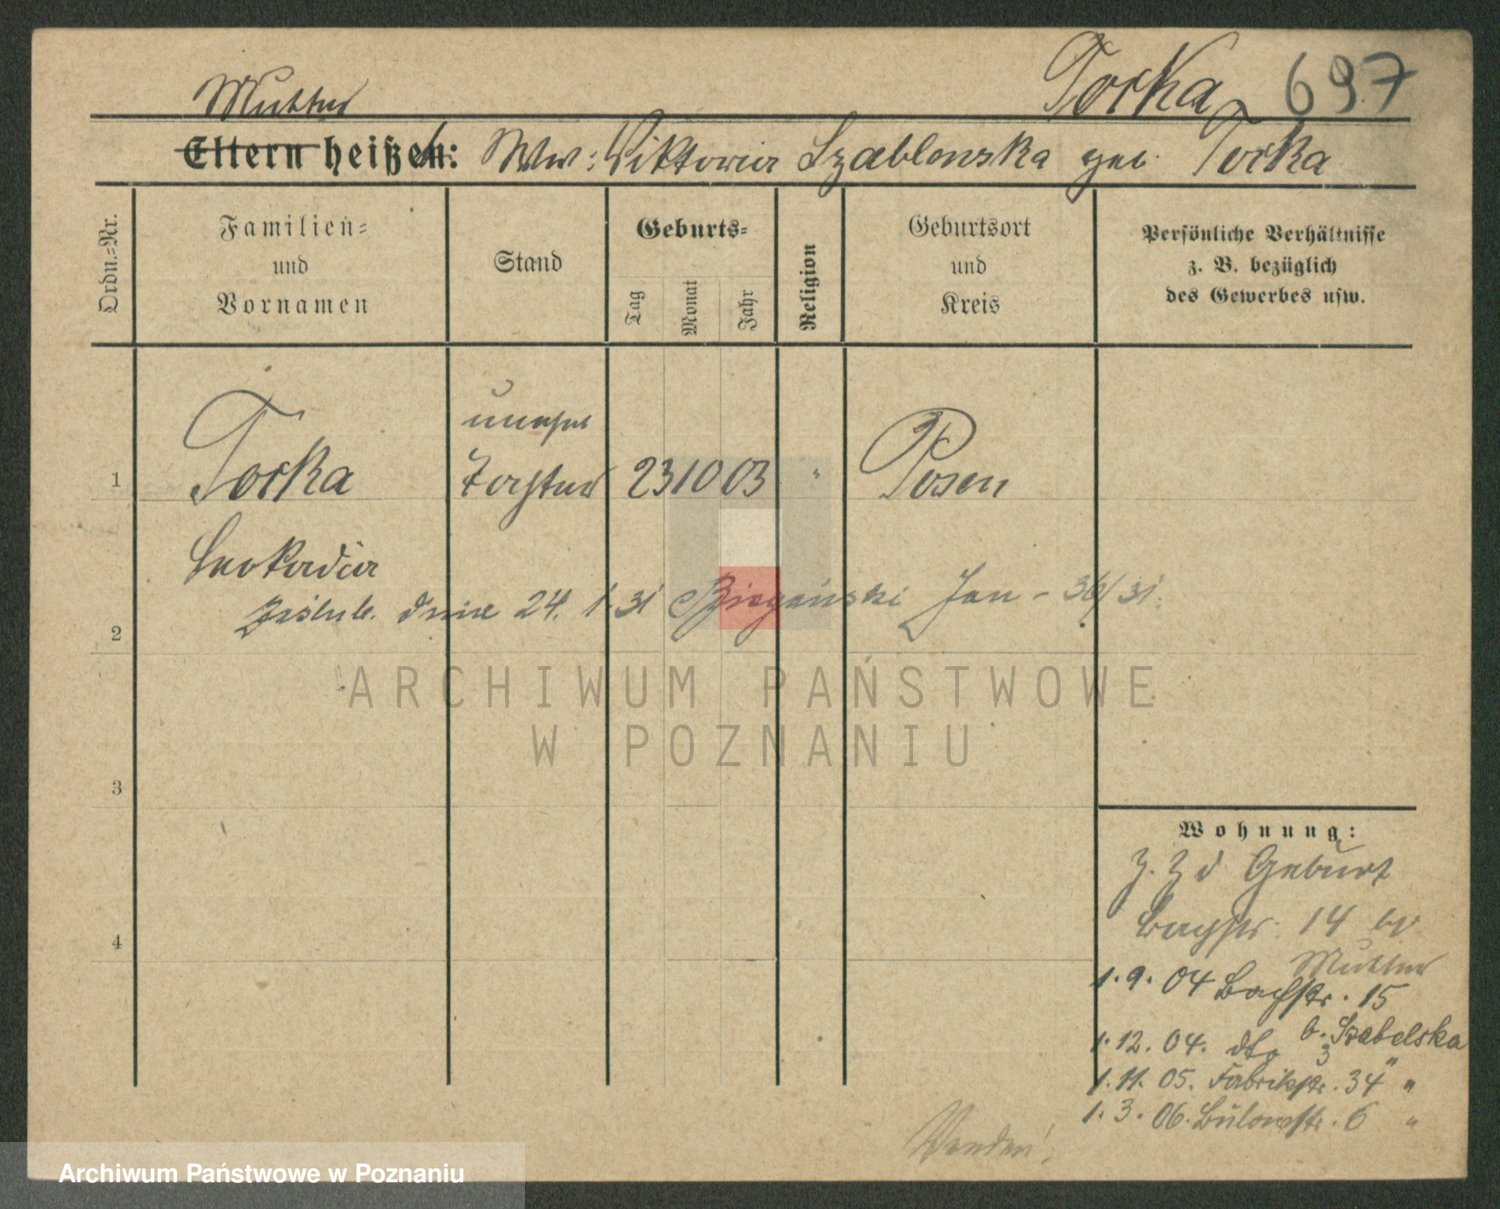 Torka 697
Mutter
Eltern heißen: Ww: Viktoria Szablonska geb. Torka
Ordn.-Nr.
Familien-
und
Vornamen
Stand
Geburts-
Tag
Monat
Jahr
Religion
Geburtsort
und
Kreis
Persönliche Verhältnisse
z. B. bezüglich
des Gewerbes usw.
unehel
1 Torka Tochter 23 10 03 " Posen
Leokadia
zaślub. dnia 24. 1. 31 Biegański Jan - 36/31.
2
ARCHIWUM PAŃSTWOWE
W POZNANIU
3
Wohnung:
z. Z d Geburt
Bachstr. 14 bei
4
Mutter
1. 9. 04 Bachstr. 15
1. 12. 04. dto b. Szabelska
3
1. 11. 05. Fabrikstr. 34 " "
1. 3. 06. Bülowstr. 6 "
Wenden!
Archiwum Państwowe w Poznaniu